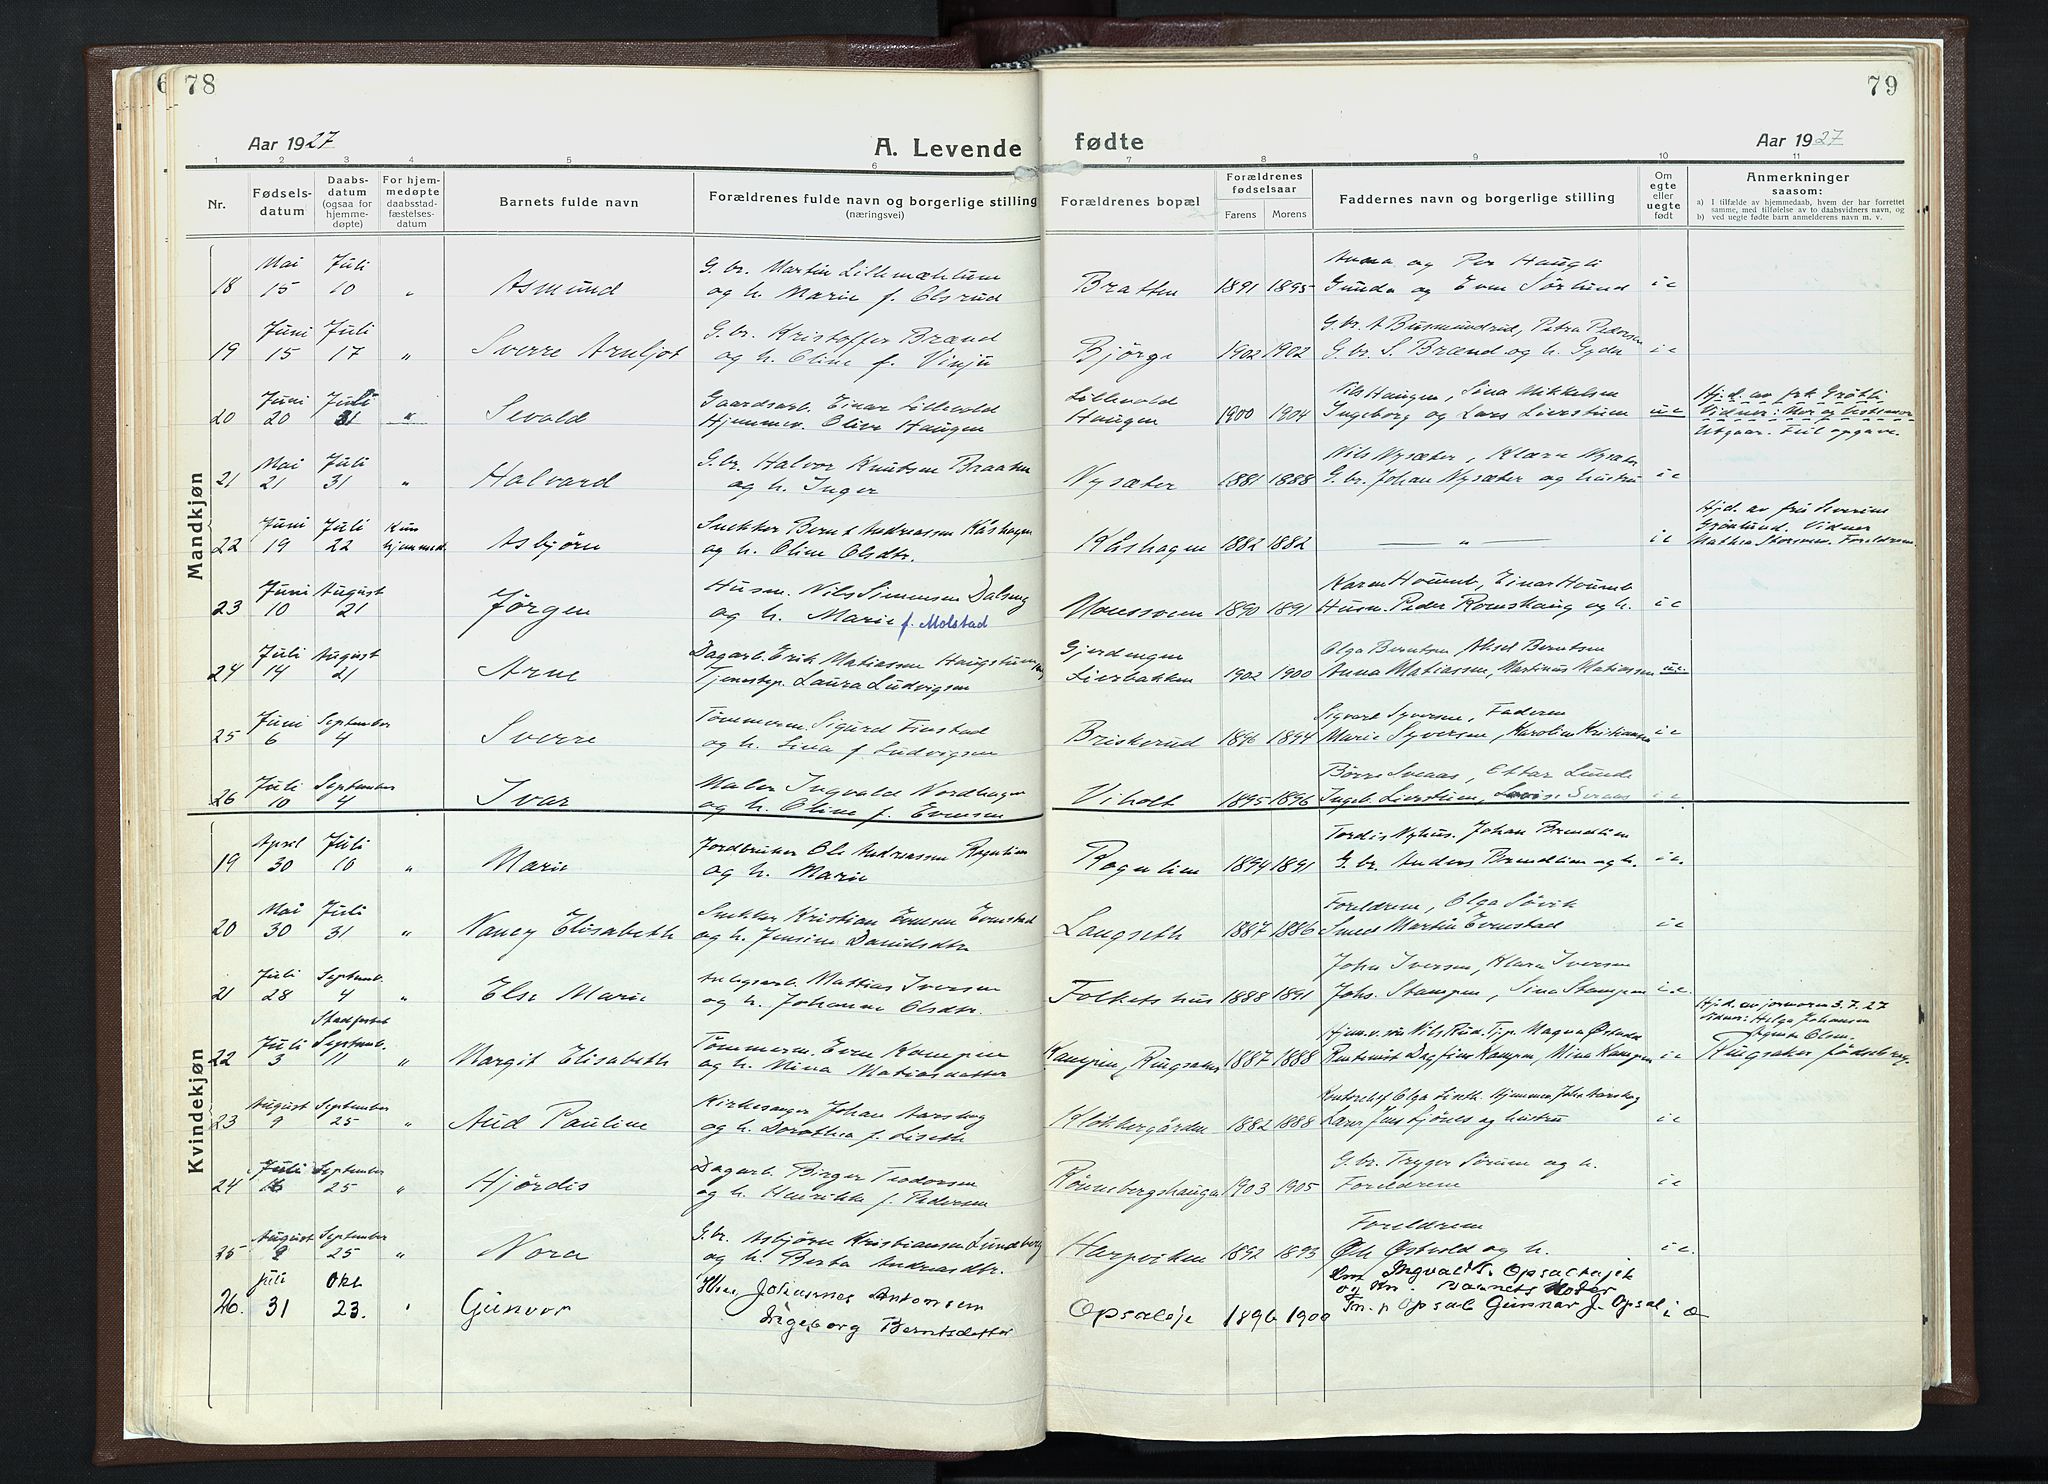 78
79
Aar 1927
A. Levende fødte
Aar 1927
1 2 3 4 5 6 7 8 9 10 11
Nr.
Fødselsdatum
Daabsdatum (ogsaa for hjemmedøpte)
For hjemmedøpte daabsstadfæstelsesdatum
Barnets fulde navn
Forældrenes fulde navn og borgerlige stilling (næringsvei)
Forældrenes bopæl
Forældrenes fødselsaar
Farens Morens
Faddernes navn og borgerlige stilling
Om egte eller uegte født
Anmerkninger saasom:
a) I tilfælde av hjemmedaab, hvem der har forrettet samme, med tilføielse av to daabsvidners navn, og
b) ved uegte fødte barn anmelderens navn m. v.
Mandkjøn
Mai Juli G. br. Martin Lillemæhlum Anna og Per Haugli
18 15 10 " Asmund og h. Marie f. Olsrud Bratten 1891 1895 Gunda og Even Sørlund i e
Juni Juli G. br. Kristoffer Brænd G. br. A Busmundrud, Petra Pedersen
19 15 17 " Sverre Arnljot og h. Oline f. Vinju Bjørge 1902 1902 G. br. S. Brænd og h. Gyda i e
Juni Juli Gaardsarb. Einar Lillevold Lillevold Nils Haugen, Sina Mikkelsen Hjd. av frk Grøtli
20 20 31 " Sevald Hjemmev. Oliva Haugen Haugen 1900 1904 Ingeborg og Lars Liverstuen ue Vidner: Mor og bestemor
Utgaar. Feil opgave.
Mai Juli G. br. Halvor Knutsen Braaten Nils Nysæter, Klara Nysæter
21 21 31 " Halvard og h. Inger Nysæter 1881 1888 G. br. Johan Nysæter og hustru i e
Juni Juli Kun Snekker Bernt Andreassen Kåshagen Hjd. av fru Severine
22 19 22 hjemmed. Asbjørn og h. Oline Olsdtr. Kåshagen 1882 1882 — " — i e Grønlund. Vidner
Mathea Storsveen. Foreldrene.
Juni August Husm. Nils Simensen Dalseng Karen Houmb, Einar Houmb
23 10 21 Jørgen og h. Marie f. Molstad 1890 1891 Husm. Peder Romshaug og h. i e
Juli August Dagarb. Erik Matiassen Gjerdengen Olga Berntsen, Aksel Berntsen
24 14 21 Arne Tjenestep. Laura Ludvigsen Lierbakken 1902 1900 Anna Matiassen, Martinus Matiassen ue
Juni September Tømmerm. Sigurd Finstad Sigvart Syversen, Faderen
25 6 4 Sverre og h. Lina f. Ludvigsen Briskerud 1896 1894 Marie Syversen, Karoline Kristiansen i e
Juli September Maler Ingvald Nordhagen Børre Sveaas, Ottar Lunde
26 10 4 Ivar og h. Oline f. Evensen Viholt 1895 1896 Ingeb. Lierstuen, Lovise Sveaas i e
Kvindekjøn
April Juli Jordbruker Ole Andreassen Rognlien Tordis Nyhus. Johan Brendlien
19 30 10 " Marie og h. Marie Rognlien 1894 1891 G. br. Anders Brendlien og h. i e.
Mai Juli Snekker Kristian Evensen Evenstad Foreldrene, Olga Søvik
20 30 31 " Nancy Elisabeth og h. Jensine Danielsdtr Langseth 1887 1886 Smed Martin Evenstad i e
Juli Septemb. Anlegsarb. Mattias Iversen Johs Iversen, Klara Iversen
21 28 4 " Else Marie og h. Johanne Olsdtr. Folkets hus 1888 1891 Johs. Stampen, Sina Stampen i e.
Stadfestet Hjd. av jormoren 3.7.27
Vidner: Helga Johansen
Agnete Olsen.
Juli Septemb. Tømmerm. Even Kampen Hjemmev. søn Nils Rud. Tjp. Magna Østadø
22 3 11 " Margit Elisabeth og h. Mina Matiasdatter Kampen, Ringsaker 1887 1888 Rentenist Dagfinn Kampen, Mina Kampen i e Ringsaker fødselsreg.
August September Kirkesanger Johan Aarskog Kontorchef Olga Liseth. Hjemmev. Johs Aarskog
23 9 25 " Aud Pauline og h. Dorothea f. Liseth Klokkergården 1882 1888 Lærer Jens Fjønes og hustru i e
Juli September Dagarb. Birger Teodorsen G. br. Trygve Sørum og h.
24 16 25 " Hjördis og h. Henrikke f. Pedersen Rønnebergshaugen 1903 1905 Foreldrene i e
August September G. br. Asbjørn Kristiansen Lundberg Foreldrene
25 2 25 " Nora og h. Berta Andreasdtr. Harpviken 1892 1893 Ole Østvold og h. i e.
Juli Okt Johannes Antonsen Ingvald Opsaleje
og Barnets Moder
26. 31 23. " Gunvor Ingeborg Berntsdatter Opsaleje 1896 1900 Opsal Gunnar J. Opsal i æ